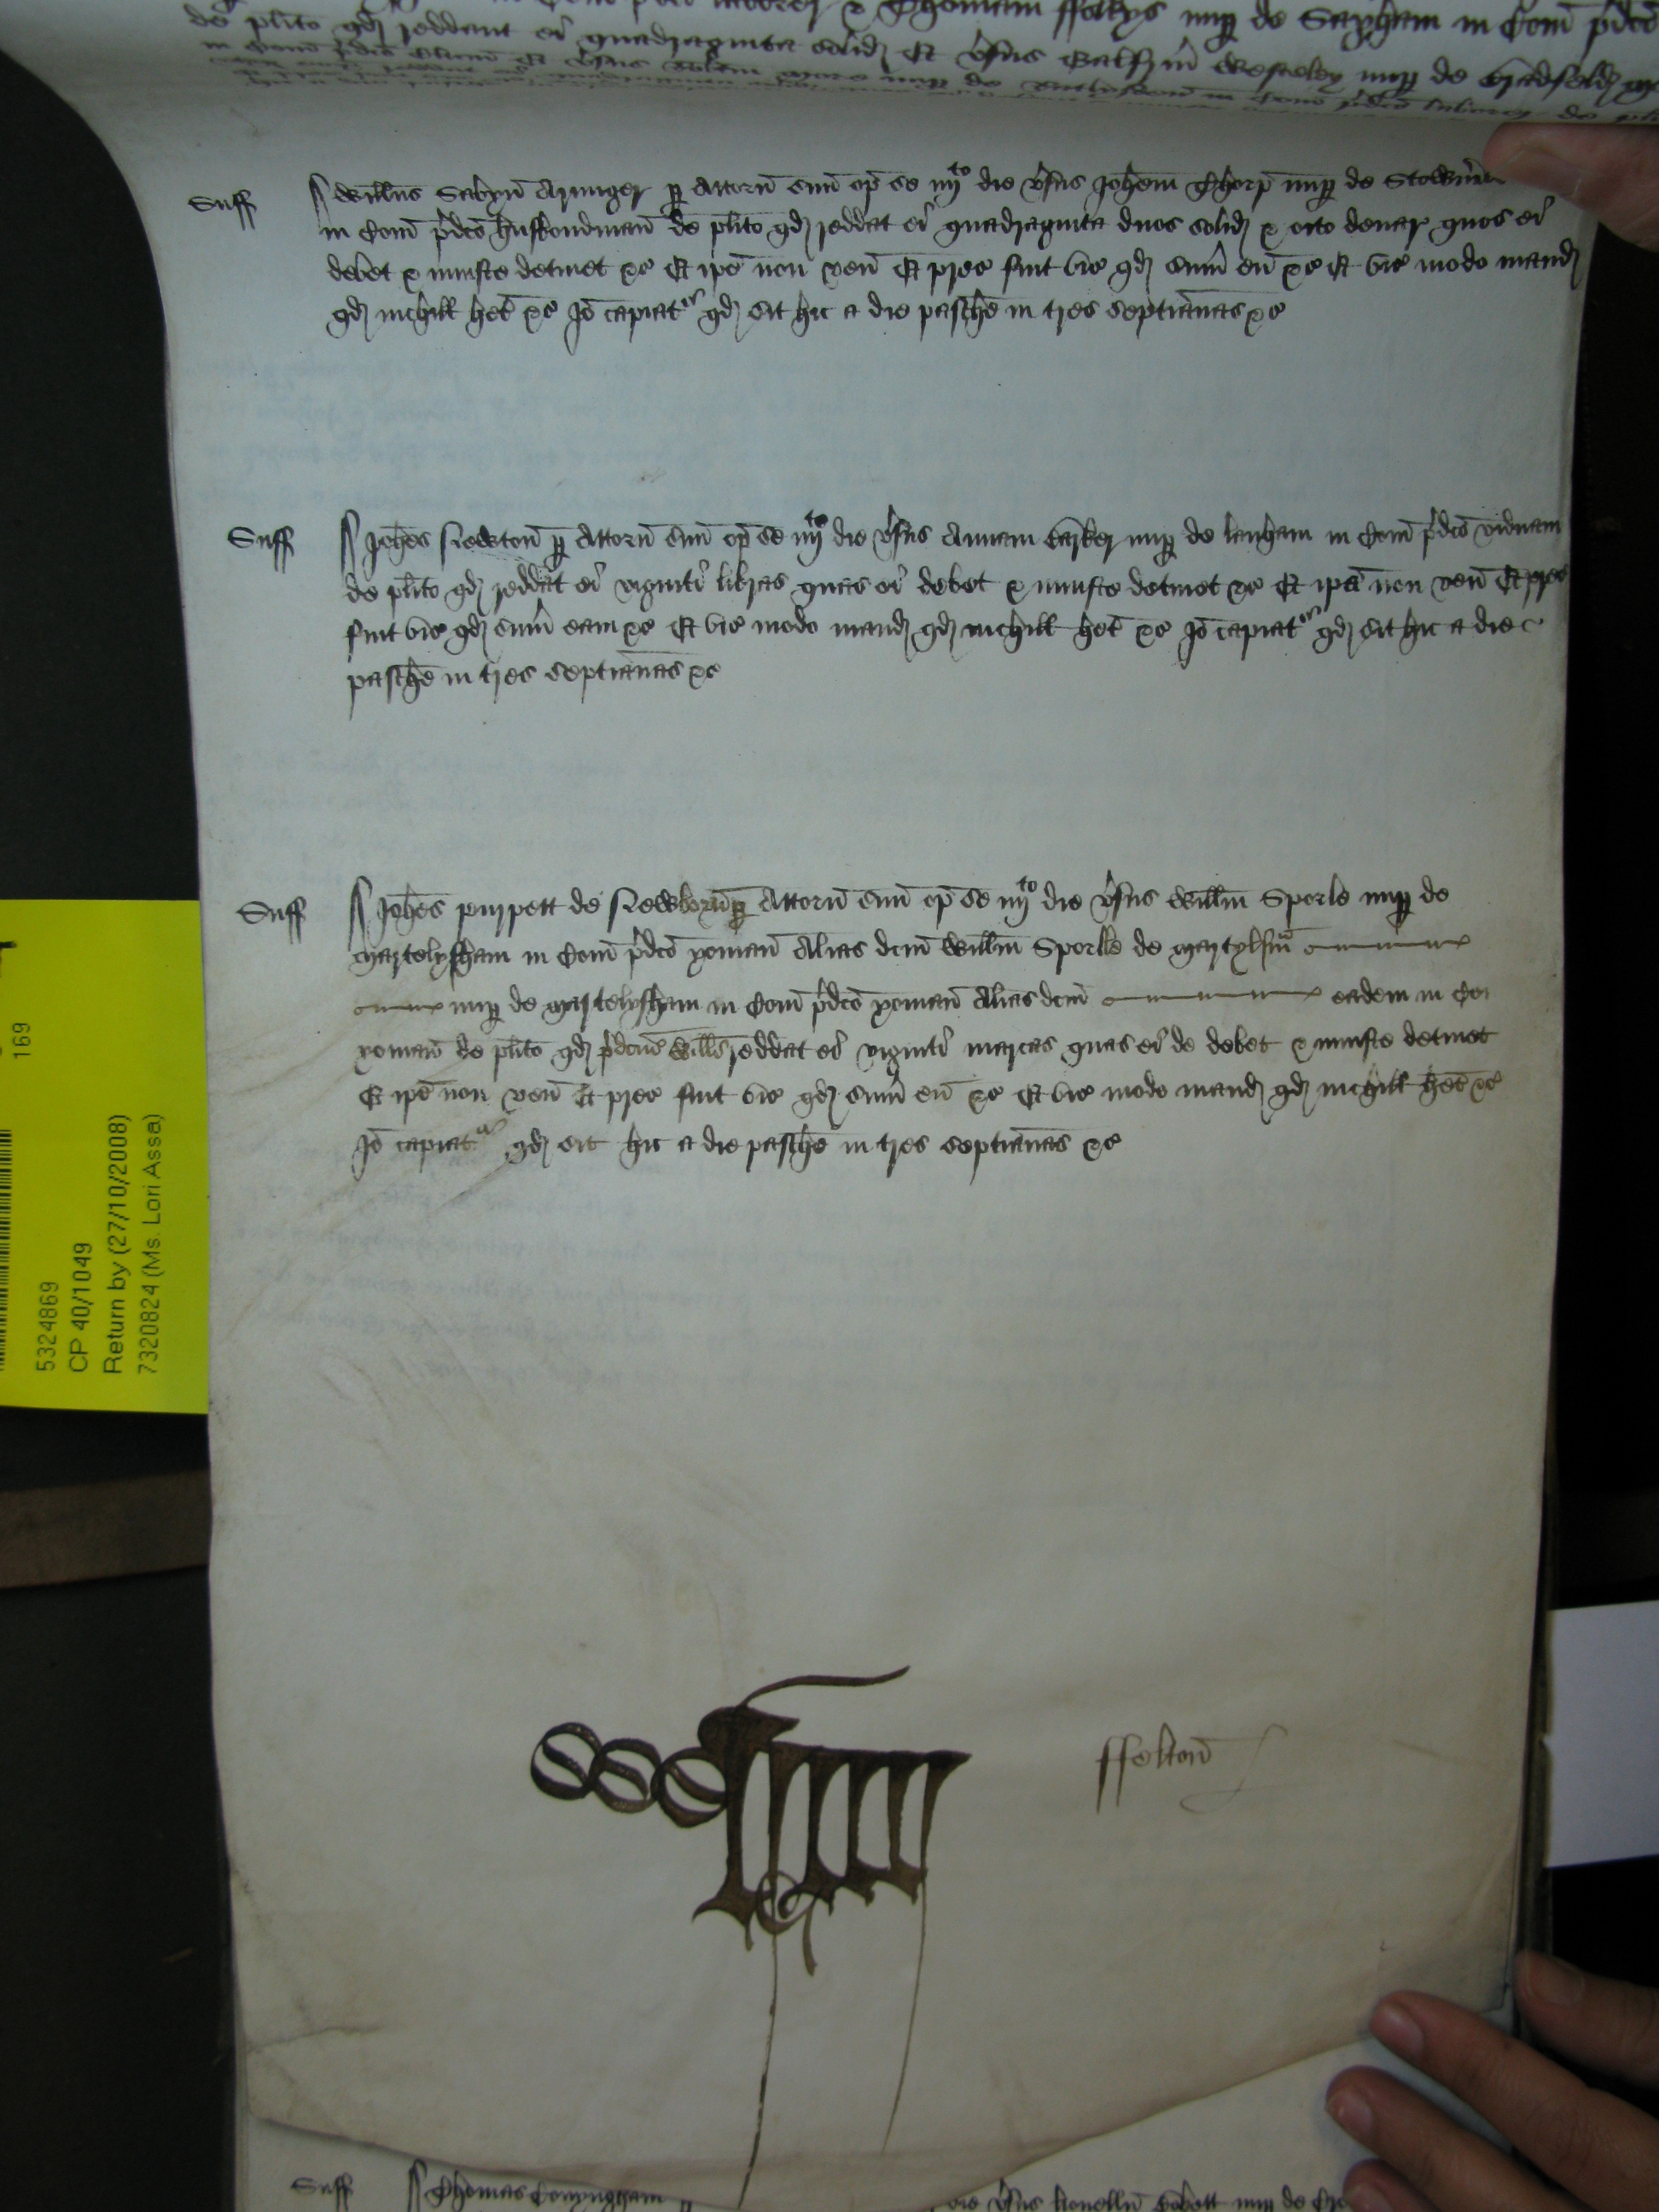 Thomam ffolkys nup de Saxham in Com p̄dco
de plito qd reddant ei quadraginta solid Et v̄sus
Suff Willms Sabyn Armiger p Attorn suu op se iiijto die v̄sus Johem Thorp nup de
in Com p̄dco husbondman de plito qd reddat ei quadraginta duos solid & octo denar quos ei
debet & iniuste detinet &c Et ipe non ven Et prec fuit vic qd sum eu &c Et vic modo mand
qd nichill het &c Io capiatr qd sit hic a die pasche in tres septianas &c
Suff Johes Newton p Attorn suu op se iiijto die v̄sus Annam Barker nup de lanham in Com p̄dco viduam
de plito qd reddat ei viginti libras quas ei debet & iniuste detinet &c Et ipa non ven Et prec
fuit vic qd sum eam &c Et vic modo mand qd nichill het &c Io capiatr qd sit hic a die
pasche in tres septianas &c
Suff Johes purpett de Newborn p Attorn suu op se iiijto die v̄sus Willm Sporle nup de
martelysham in Com p̄dco yoman Alias dcm Willm Sporlle de
nup de martelysham in Com p̄dco yoman Alias dcm eadem in Com
yoman de plito qd p̄dcus Willms reddat ei viginti marcas quas ei de debet & iniuste detinet
Et ipe non ven Et prec fuit vic qd sum eu &c Et vic modo mand qd nichill het &c
Io capiatr qd sit hic a die pasche in tres septianas &c
ffelton
Suff Thomas Conyngham
die v̄sus nup de
169
5324869
CP 40/1049
Return by (27/10/2008)
7320824 (Ms. Lori Assa)